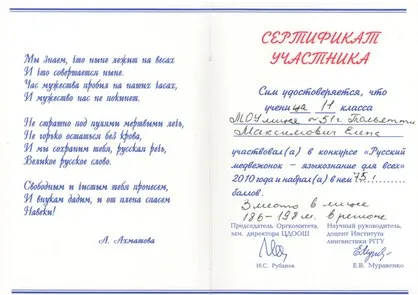 Мы Знаем, что ныне лежит на весах
И что совершается ныне.
Час мужества пробил на наших часах,
И мужество нас не покинет.
Не страшно под пулями мертвыми лечь,
Не горько остаться без крова,
И мы сохраним тебя, русская речь,
Великое русское слово.
Свободным и чистым тебя пронесем,
И внукам дадим, и от плена спасем
Навеки!
А. Ахматова
СЕРТИФИКАТ
УЧАСТНИКА
Сим удостоверяется, что
учени ца 11 класса
МОУ лицея №51 г Тольятти
Максимович Елена
участвовал(а) в конкурсе «Русский
медвежонок - языкознание для всех»
2010 года и набрал(а) в нем 75
баллов.
3 место в лицее
186-198 м. в регионе
Председатель Оргкомитета,
зам. директора ЦДООШ
И.С. Рубанов
Научный руководитель,
доцент Института
лингвистики РГГУ
Е.В. Муравенко